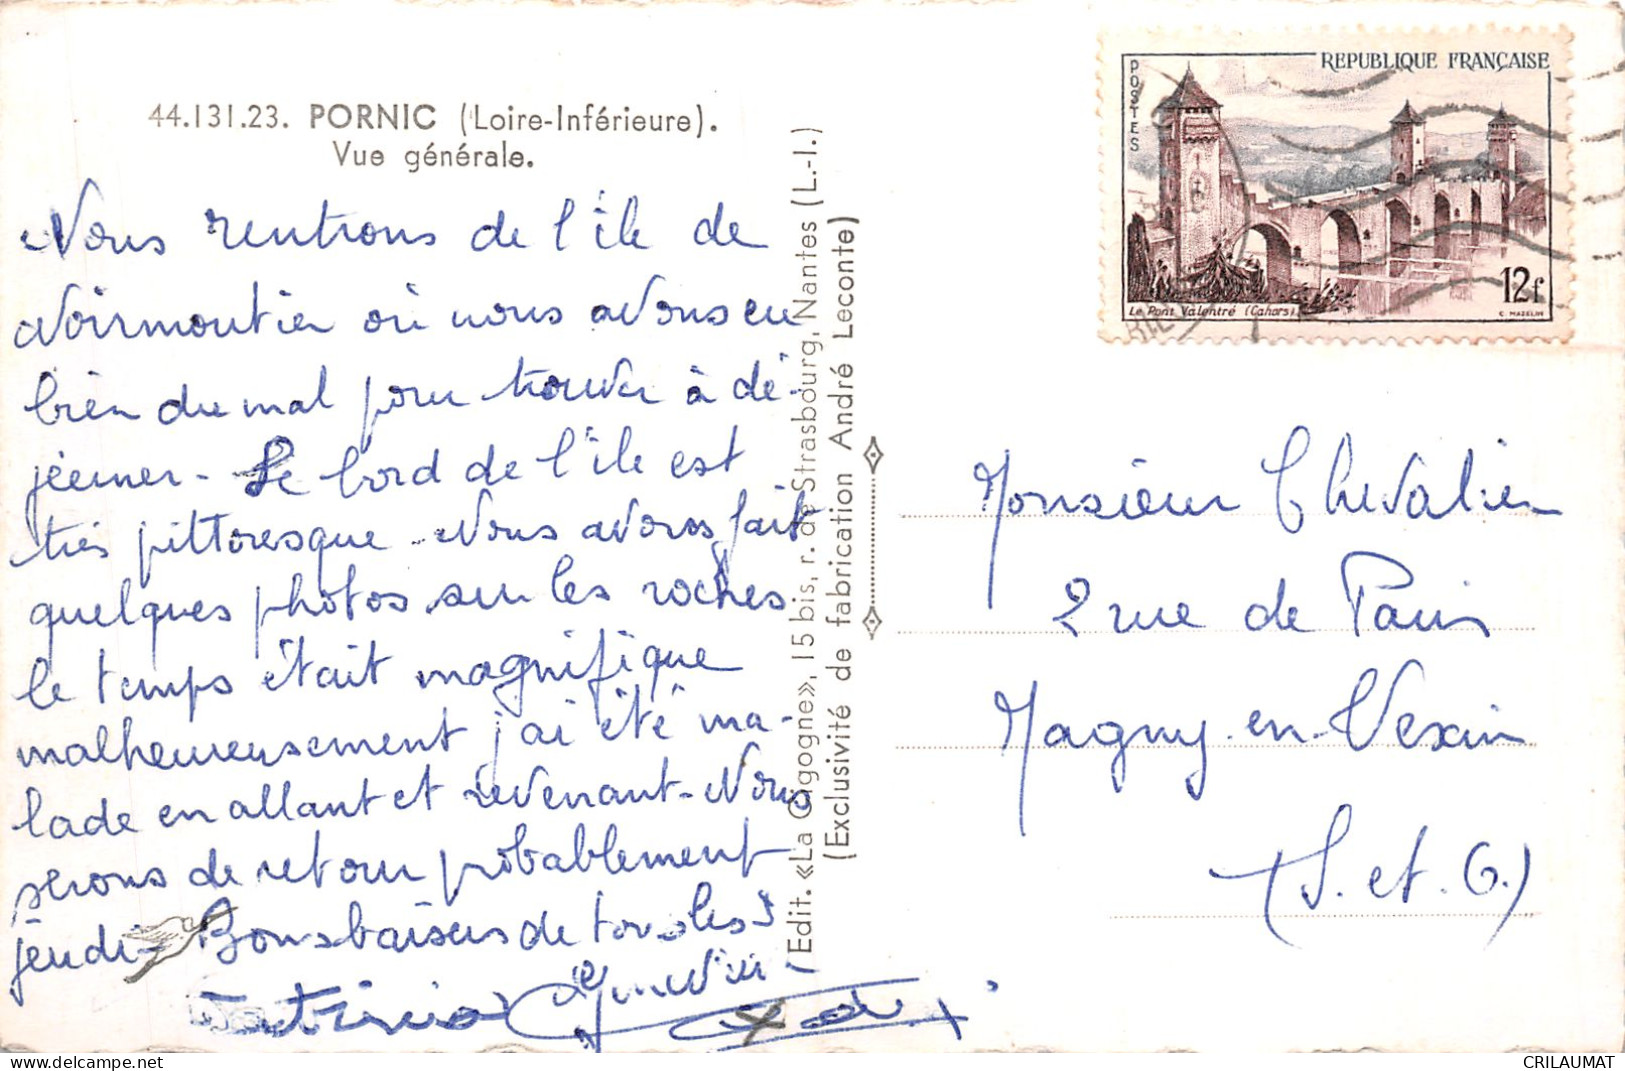 44.131.23. PORNIC (Loire-Inférieure).
Vue générale.
Nous rentrons de l'île de
Noirmoutier où nous avons eu
bien du mal pour trouver à dé-
jeuner - Le bord de l'île est
très pittoresque - Nous avons fait
quelques photos sur les roches
le temps était magnifique
malheureusement j'ai été ma-
lade en allant et revenant - Nous
serons de retour probablement
jeudi - Bons baisers de tous les 3
Patricia Geneviève
(Edit. «La Cigogne», 15 bis, r. de Strasbourg, Nantes (L.-I.)
(Exclusivité de fabrication André Leconte)
REPUBLIQUE FRANÇAISE
POSTES
12f
Le Pont Valentré (Cahors)
C. MAZELIN
Monsieur Chevalier
2 rue de Paris
Magny-en-Vexin
(S. et. O.)
delcampe.net
CRILAUMAT